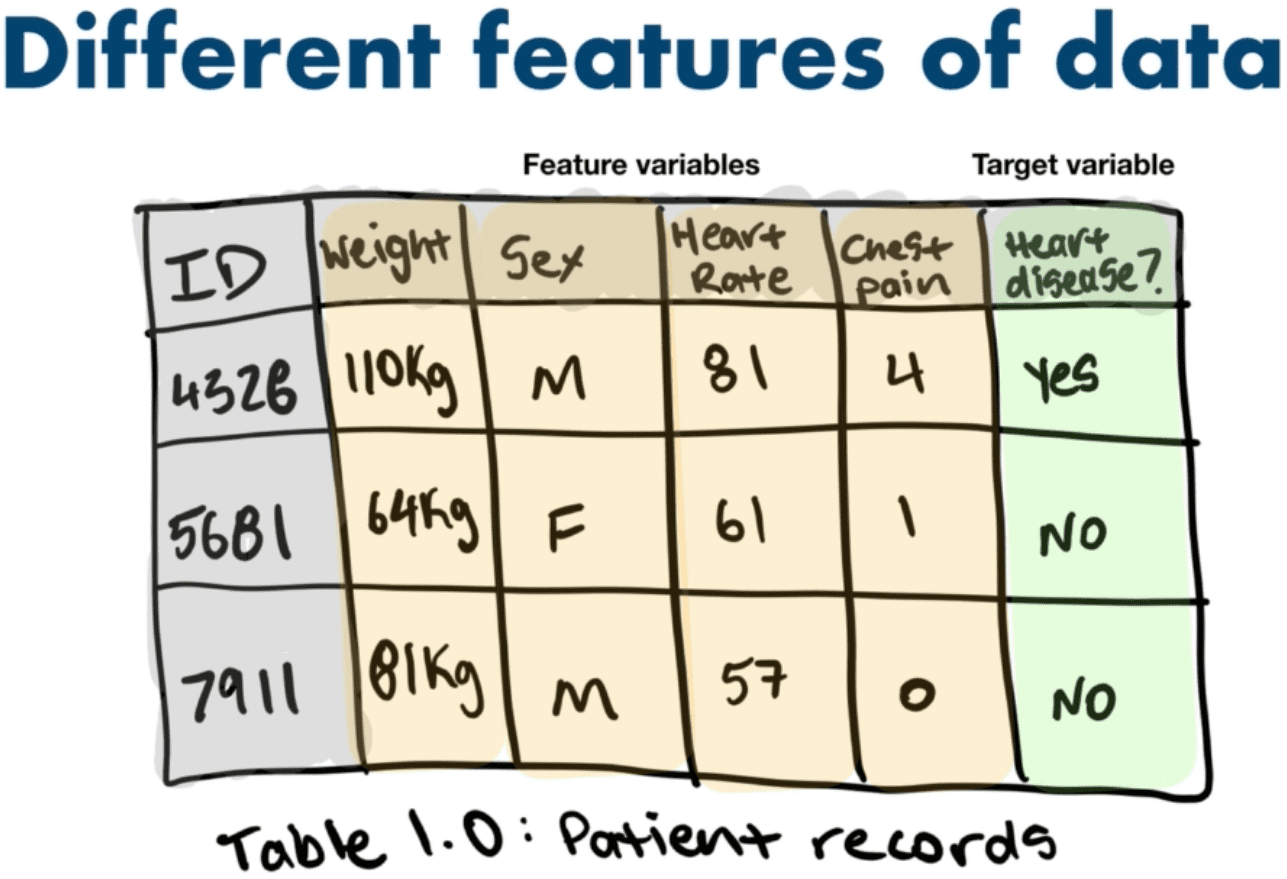 Different features of data
Feature variables Target variable
ID Weight Sex Heart Rate Chest pain Heart disease?
4326 110Kg M 81 4 Yes
5681 64Kg F 61 1 NO
7911 81Kg M 57 0 NO
Table 1.0: Patient records